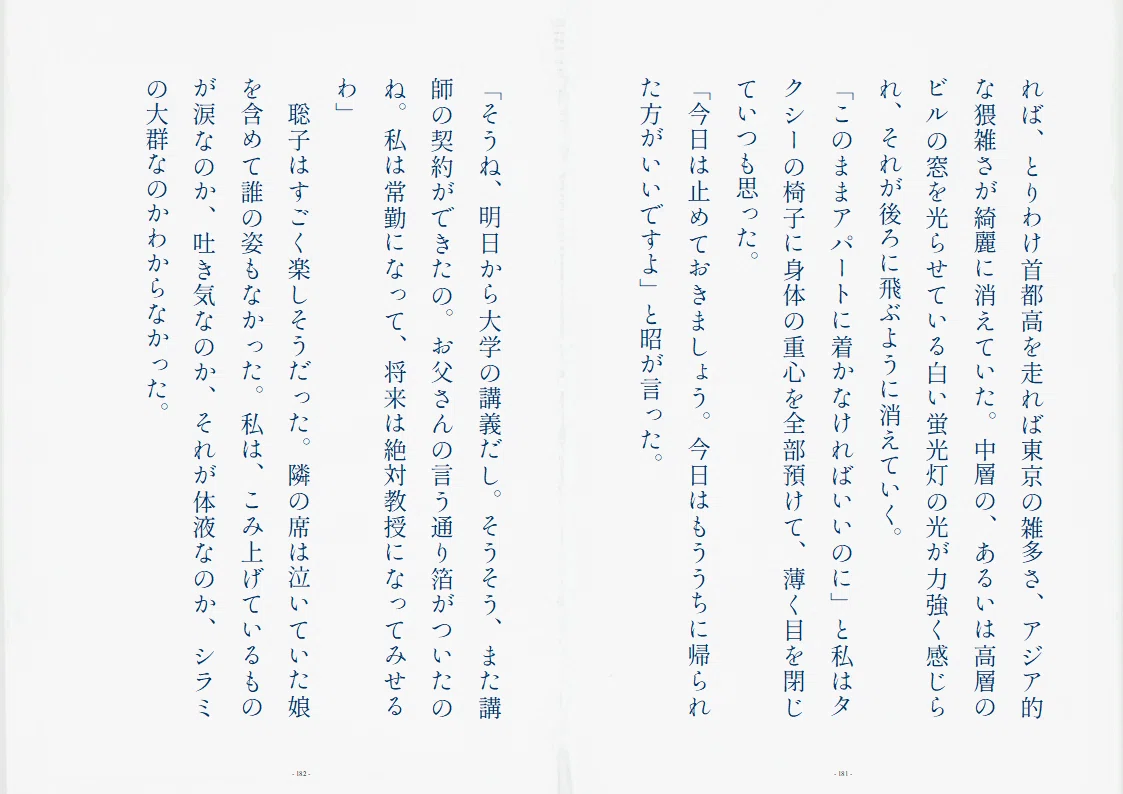 れば、とりわけ首都高を走れば東京の雑多さ、アジア的
な猥雑さが綺麗に消えていた。中層の、あるいは高層の
ビルの窓を光らせている白い蛍光灯の光が力強く感じら
れ、それが後ろに飛ぶように消えていく。
「このままアパートに着かなければいいのに」と私はタ
クシーの椅子に身体の重心を全部預けて、薄く目を閉じ
ていつも思った。
「今日は止めておきましょう。今日はもううちに帰られ
た方がいいですよ」と昭が言った。
- 181 -
「そうね、明日から大学の講義だし。そうそう、また講
師の契約ができたの。お父さんの言う通り箔がついたの
ね。私は常勤になって、将来は絶対教授になってみせる
わ」
聡子はすごく楽しそうだった。隣の席は泣いていた娘
を含めて誰の姿もなかった。私は、こみ上げているもの
が涙なのか、吐き気なのか、それが体液なのか、シラミ
の大群なのかわからなかった。
- 182 -